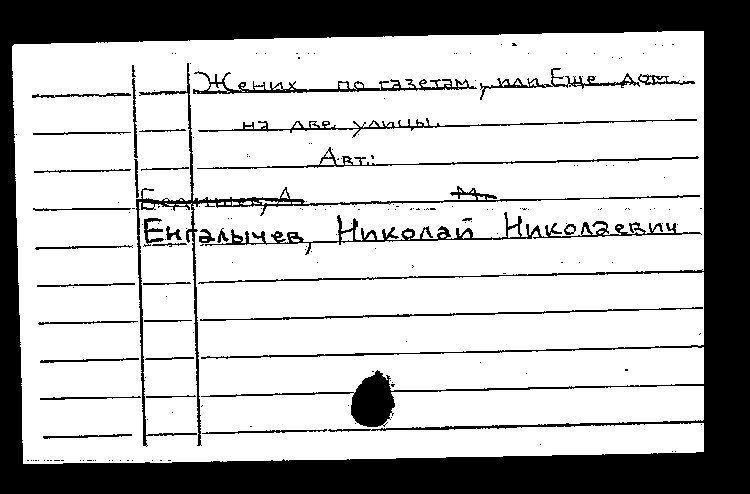 Жених по газетам, или Еще дом
на две улицы.
Авт.:
М.
Енгалычев, Николай Николаевич